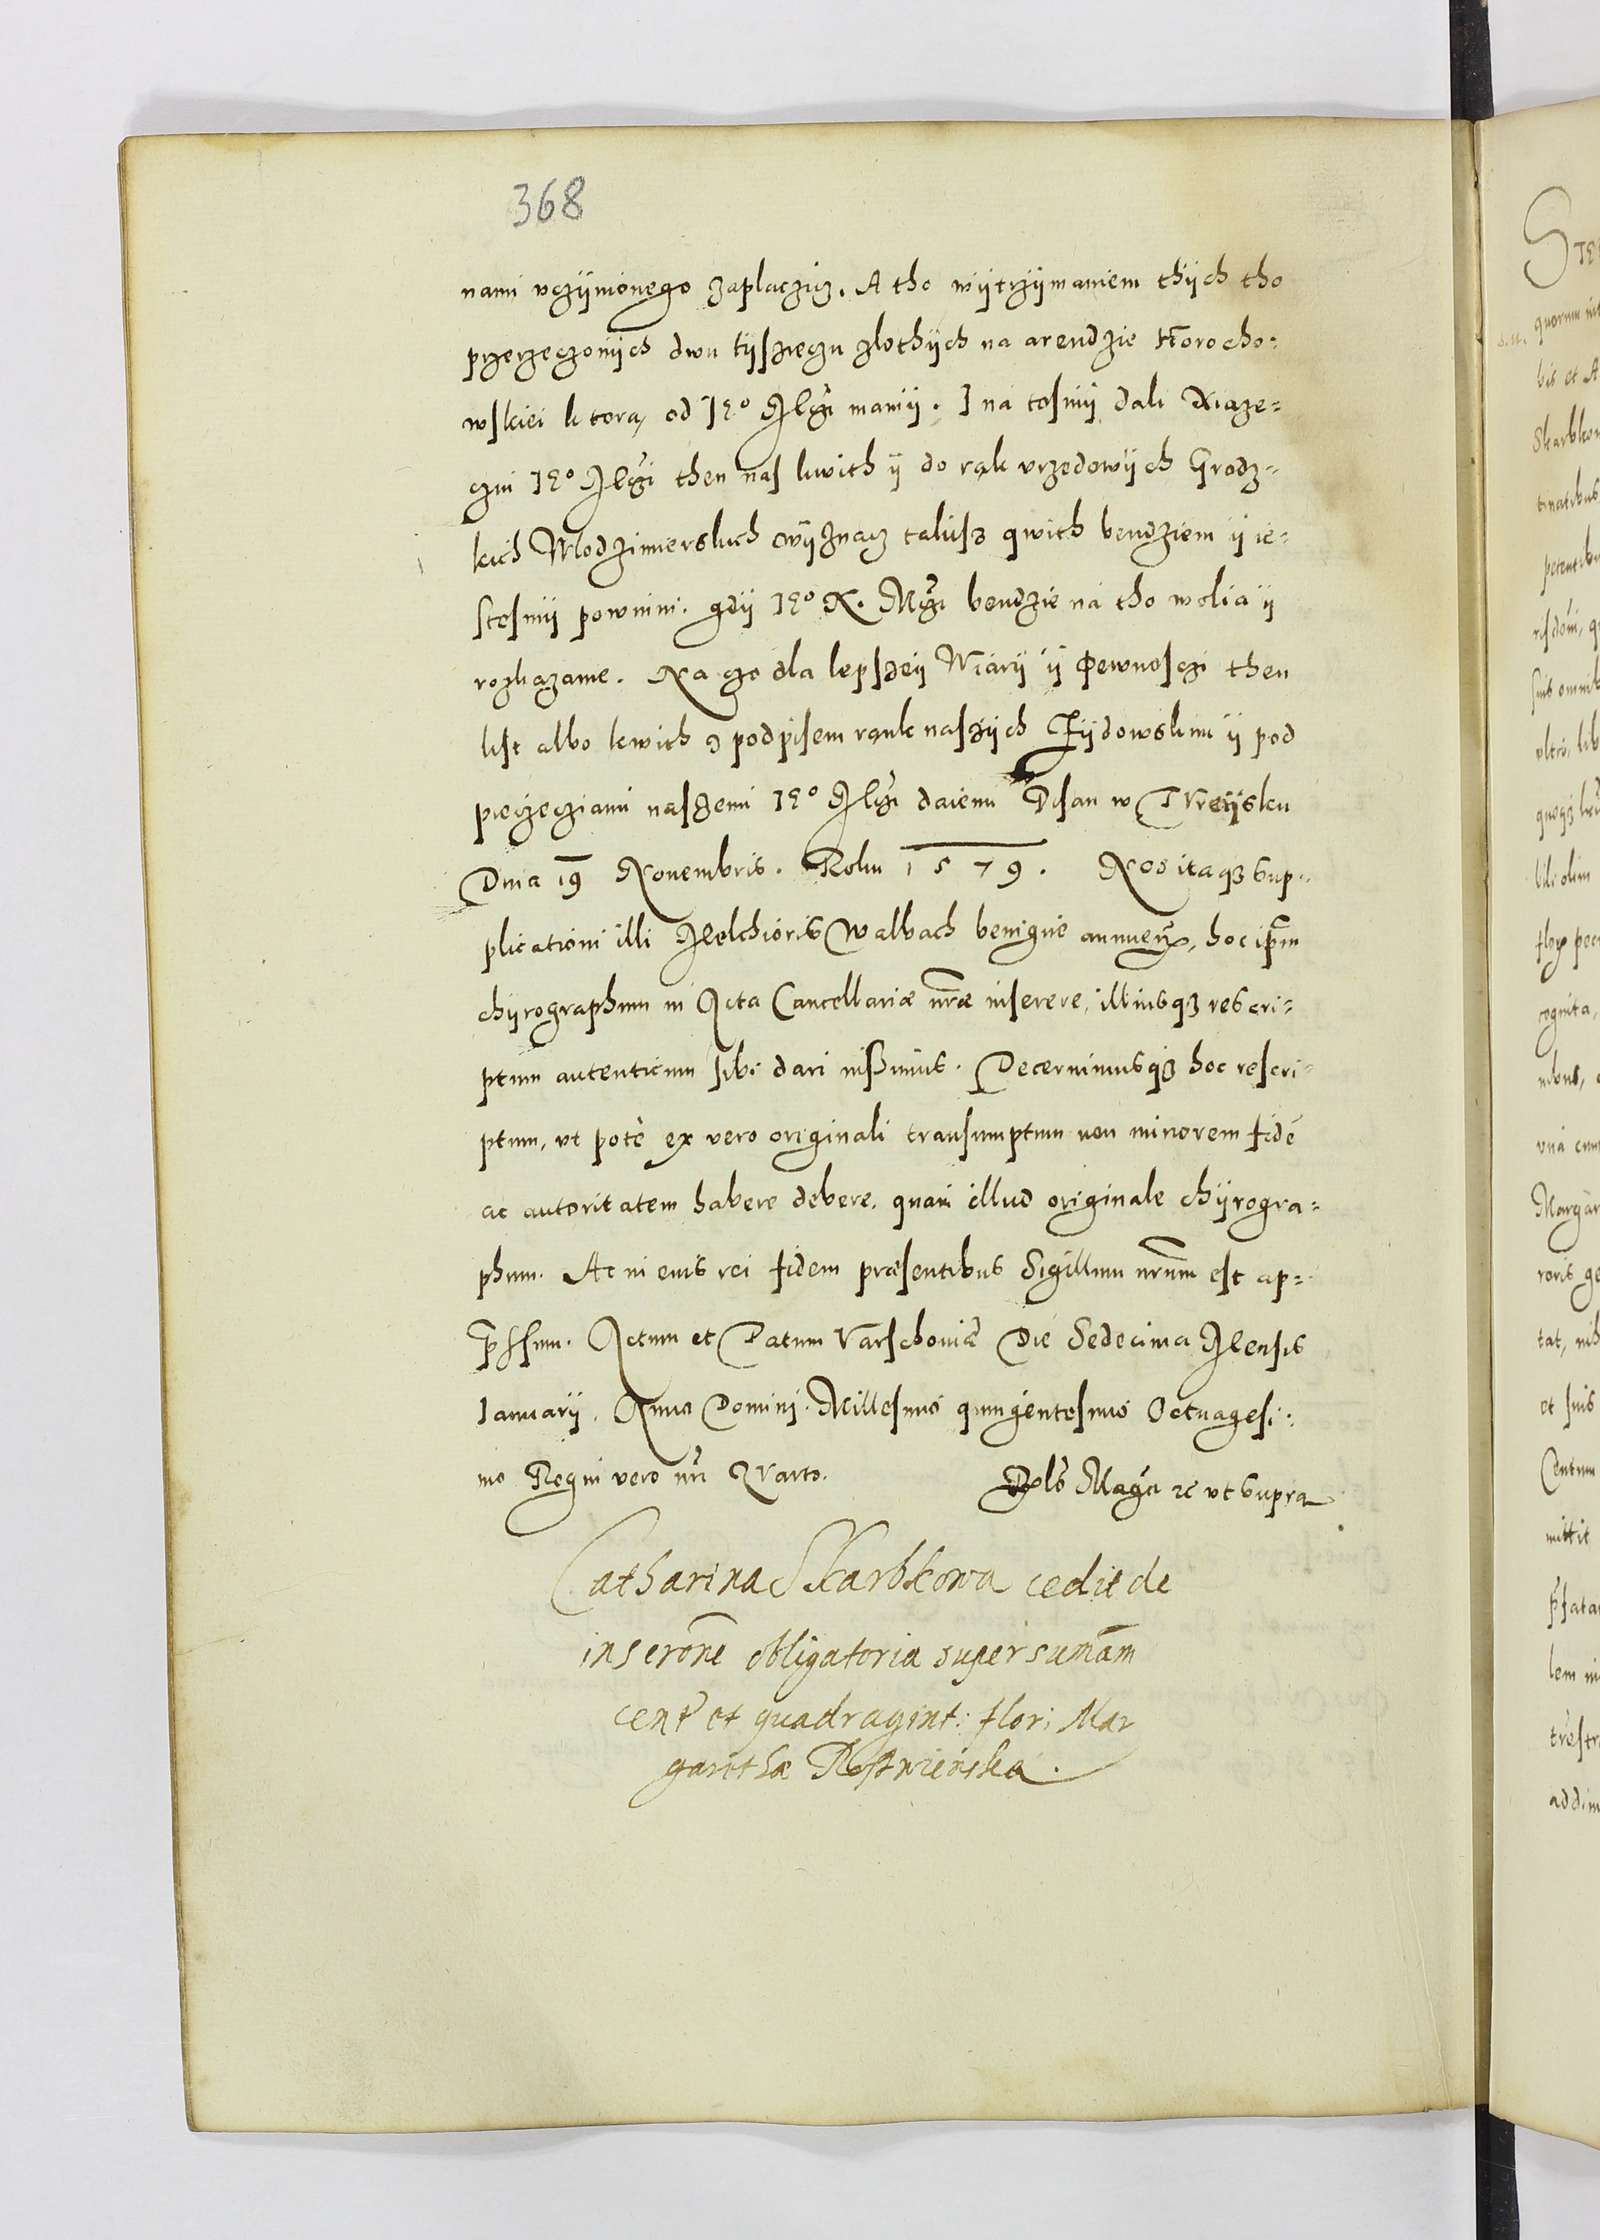 368
nami vczÿnionego zaplaczicz. A tho wÿtrzÿmaniem thÿch tho
przerzeczonÿch dwu tÿszięczu zlothÿch na arendzie Horocho=
wskiei ktorą od Jeo Mczi mamÿ. I na tosmÿ dali Xiąze=
czui Jeo Mczi then nas kwith ÿ do rąk vrzędowÿch Grodz=
kich Wlodzimierskich wÿznacz takiisz qwith bendziem ÿ ie=
stesmÿ powinni. gdÿ Jeo X. Mczi bendzie na tho wolia ÿ
rozkazanie. Na czo dla lepszeÿ Wiarÿ ÿ Pewnosczi then
list albo kwith s podpisem rąnk naszÿch Zÿdowskim ÿ pod
pieczęcziami naszemi Jeo Mczi daiemi Pisan w Tureÿsku
Dnia 19 Nouembris. Roku 1579. Nos itaqz sup=
plicationi illi Melchioris Walbach benigne annuen, hoc ipm
chÿrographum in Acta Cancellariæ nræ inserere, illiusqz rescri=
ptum autenticum sibi dari iussimus. Decernimusqz hoc rescri=
ptum, vt pote ex vero originali transumptum non minorem fidē
ac autoritatem habere debere, quam illud originale chÿrogra=
phum. At in euis rei fidem præsentibus Sigillum nrum est ap=
pssum. Actum et Datum Varschouiæ Die Sedecima Mensis
Januarÿ. Anno Domini Millesimo quingentesimo Octuagesi:
mo Regni vero nri Quarto.
Mgci zc vt supra
Catharina Skarbkowa cedit de
inscrone obligatoria super sumam
cent et quadragint: flor: Mar
garethæ